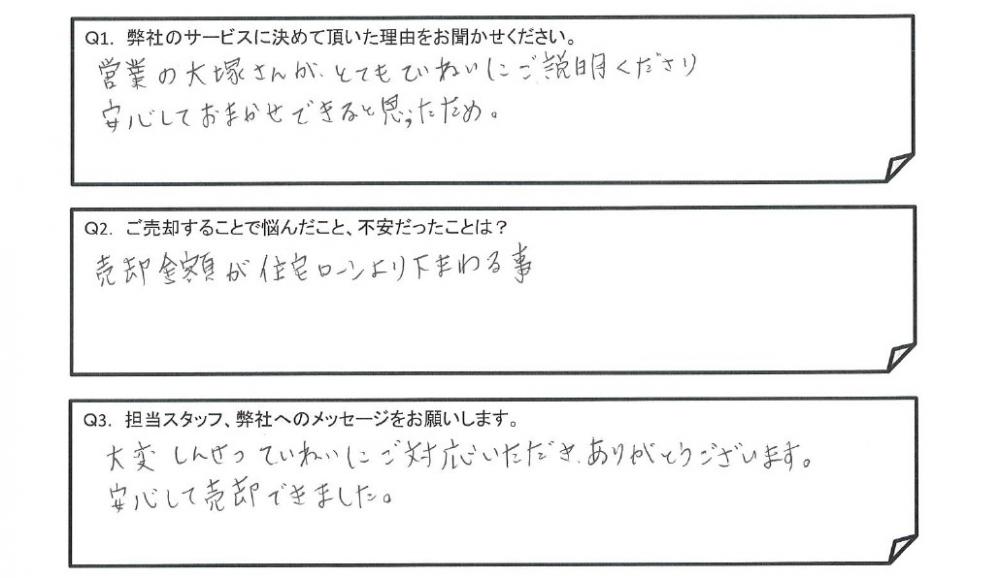 Q1. 弊社のサービスに決めて頂いた理由をお聞かせください。
営業の大塚さんが、とてもていねいにご説明くださり
安心しておまかせできると思ったため。
Q2. ご売却することで悩んだこと、不安だったことは？
売却金額が住宅ローンより下まわる事
Q3. 担当スタッフ、弊社へのメッセージをお願いします。
大変しんせつていねいにご対応いただき、ありがとうございます。
安心して売却できました。